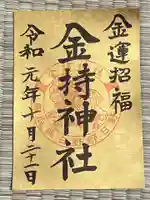 金運招福
金持神社
令和元年十月二十一日